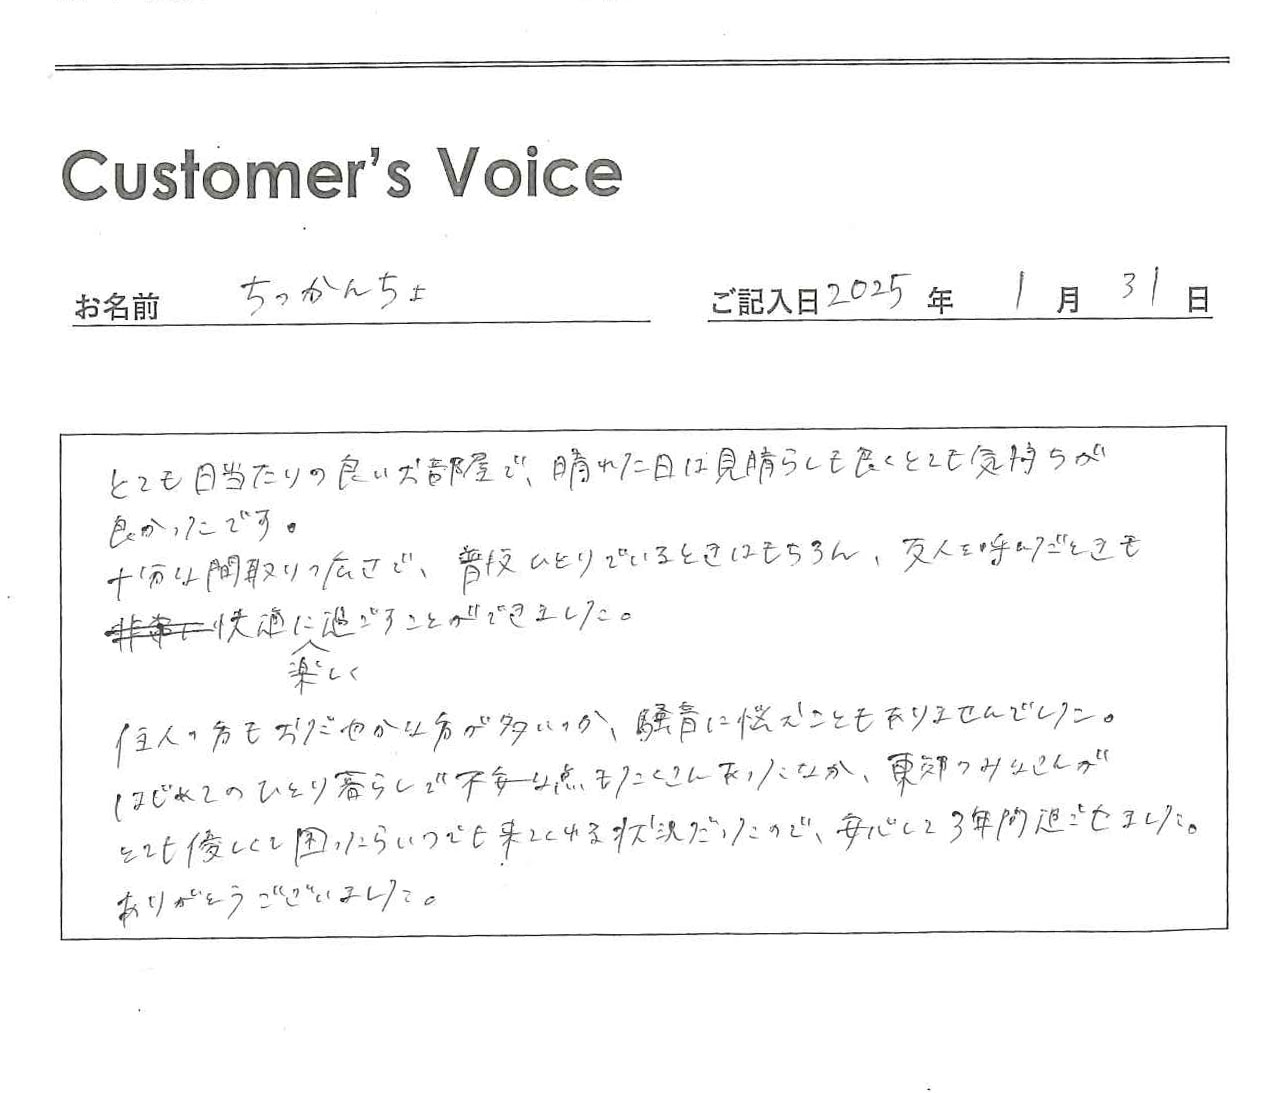 Customer's Voice
お名前 ちっかんちょ
ご記入日 2025 年 1 月 31 日
とても日当たりの良いお部屋で、晴れた日は見晴らしも良くとても気持ちが
良かったです。
十分な間取りの広さで、普段ひとりでいるときはもちろん、友人を呼んだときも
非常に快適に過ごすことができました。
楽しく
住人の方もおだやかな方が多いのか、騒音に悩むこともありませんでした。
はじめてのひとり暮らしで不安な点もたくさんあったなか、東郊のみなさんが
とても優しくて困ったらいつでも来てくれる状況だったので、安心して3年間過ごせました。
ありがとうございました。